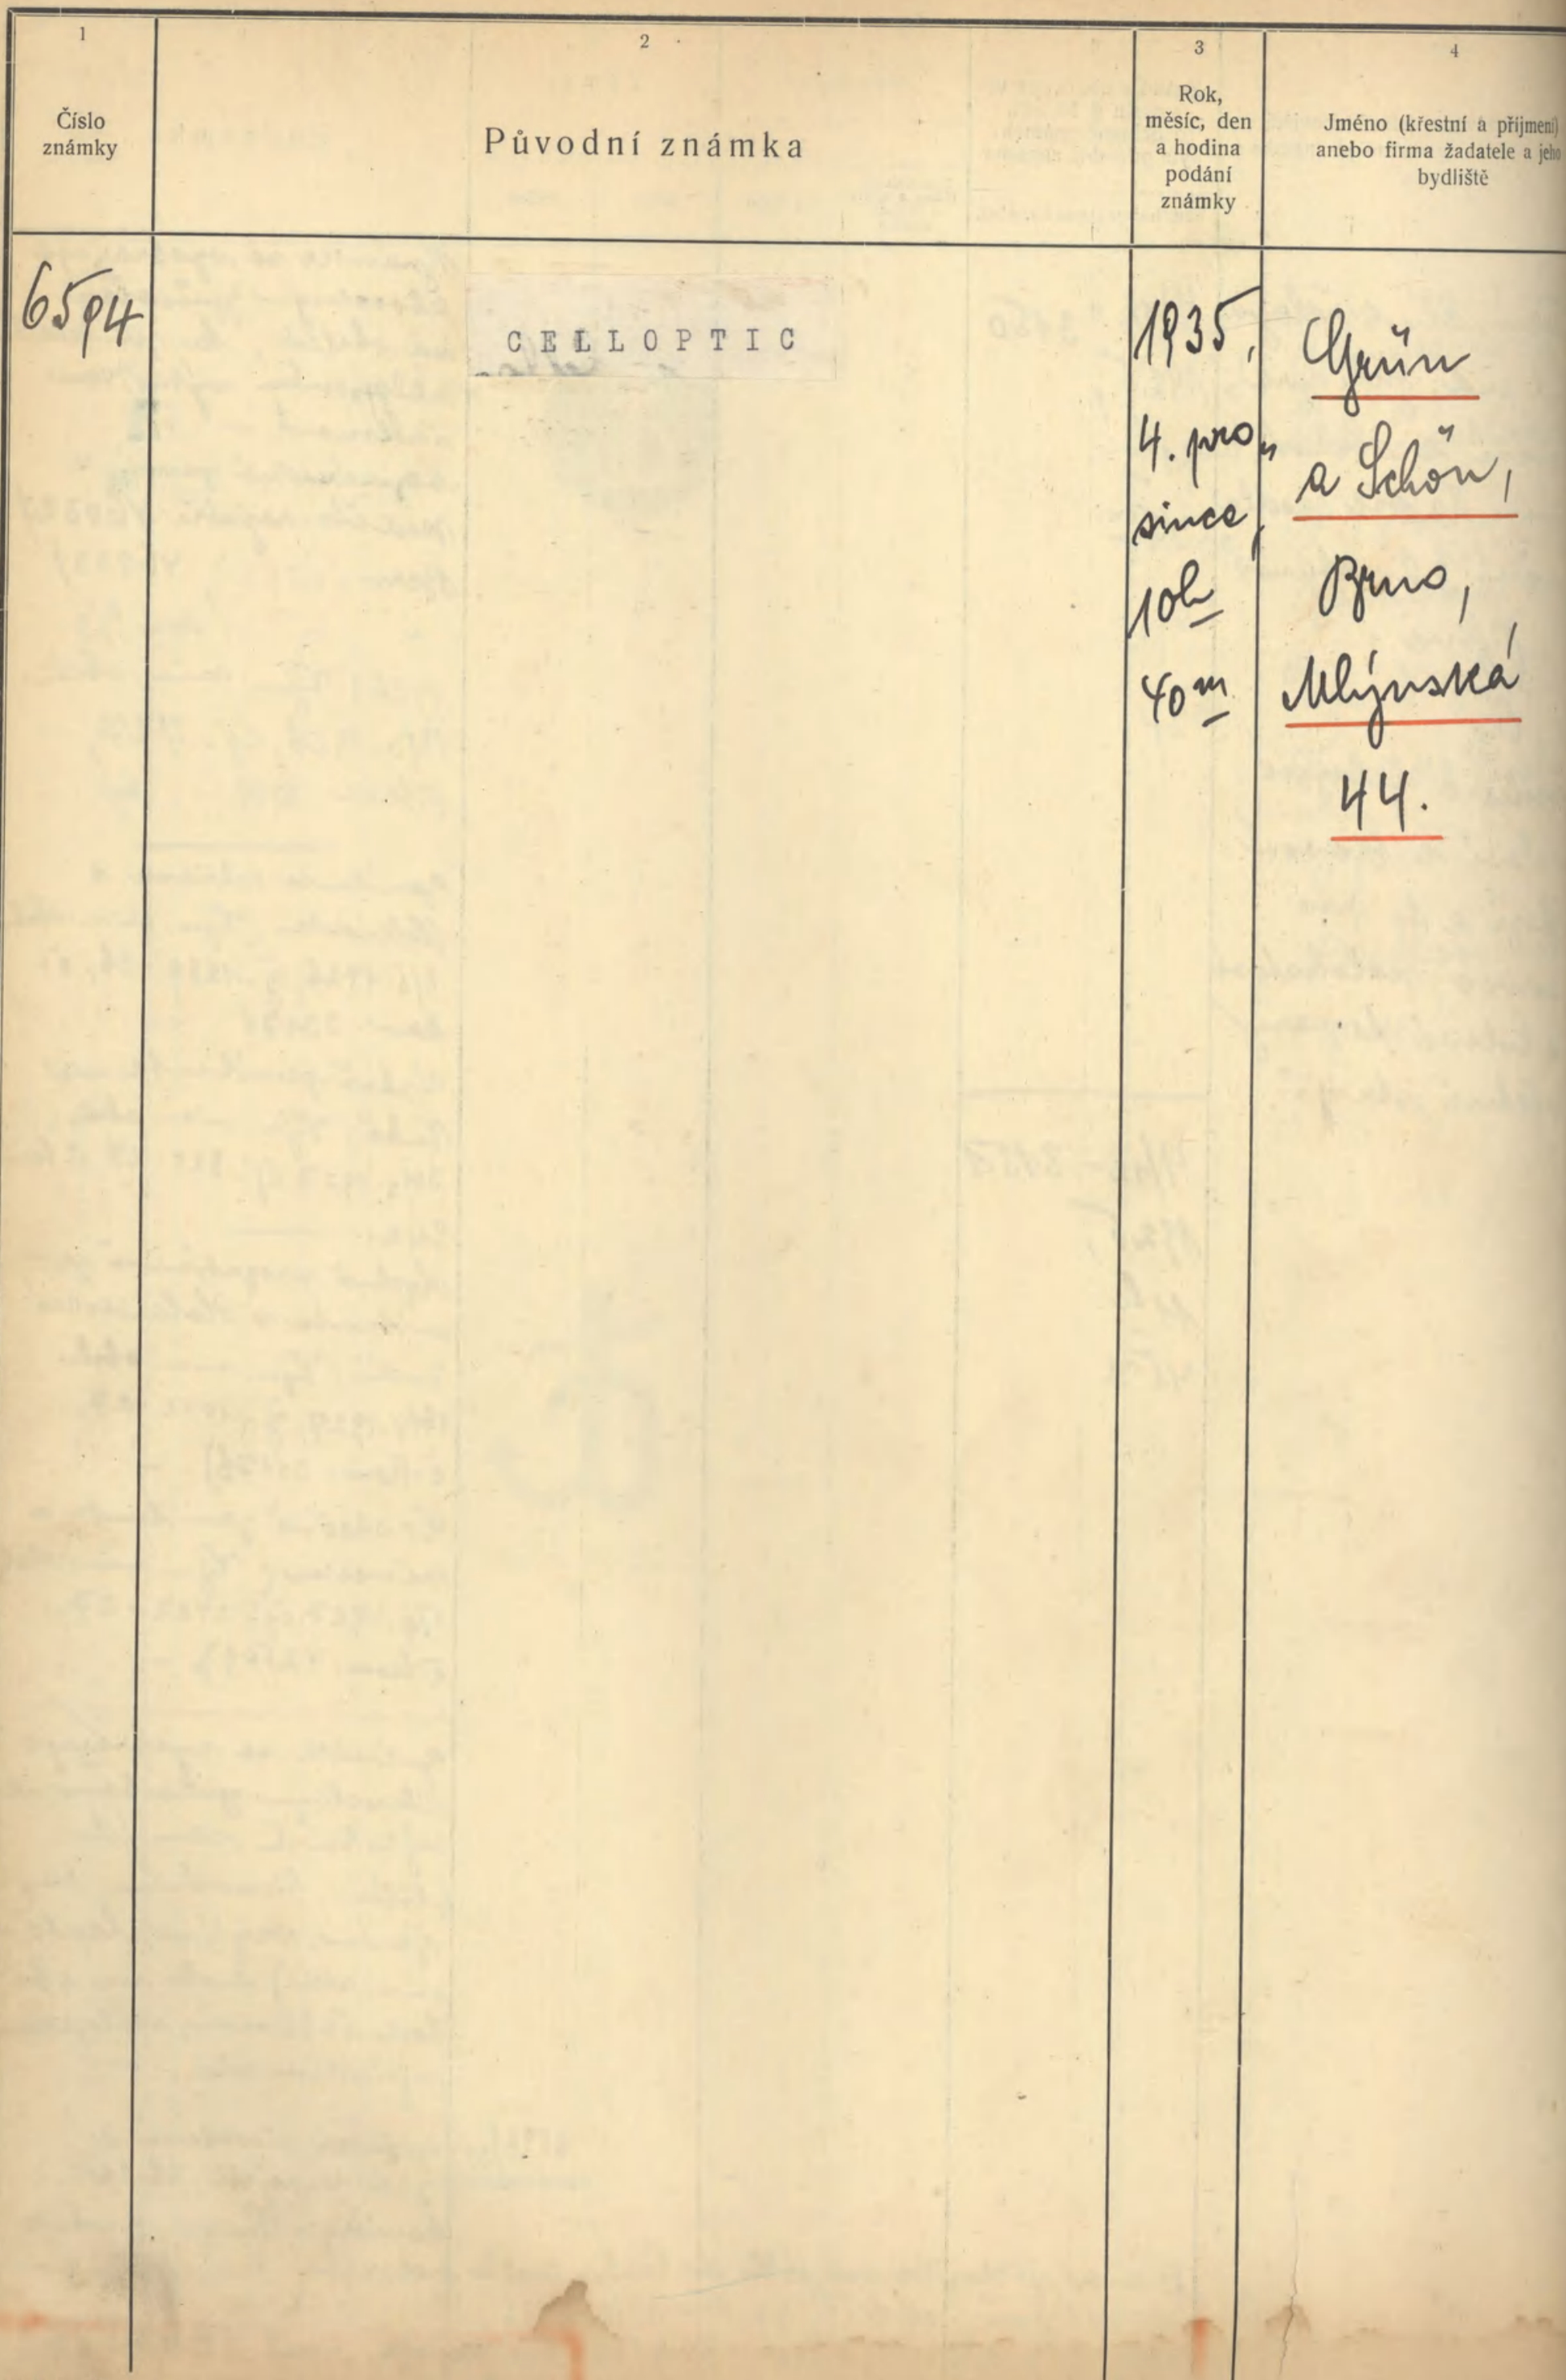 1
Číslo
známky
2
Původní známka
3
Rok,
měsíc, den
a hodina
podání
známky
4
Jméno (křestní a příjmení)
anebo firma žadatele a jeho
bydliště
6594
CELLOPTIC
1935,
4. pro„
since,
10h
40m
Grün
a Schön,
Brno,
Mlýnská
44.